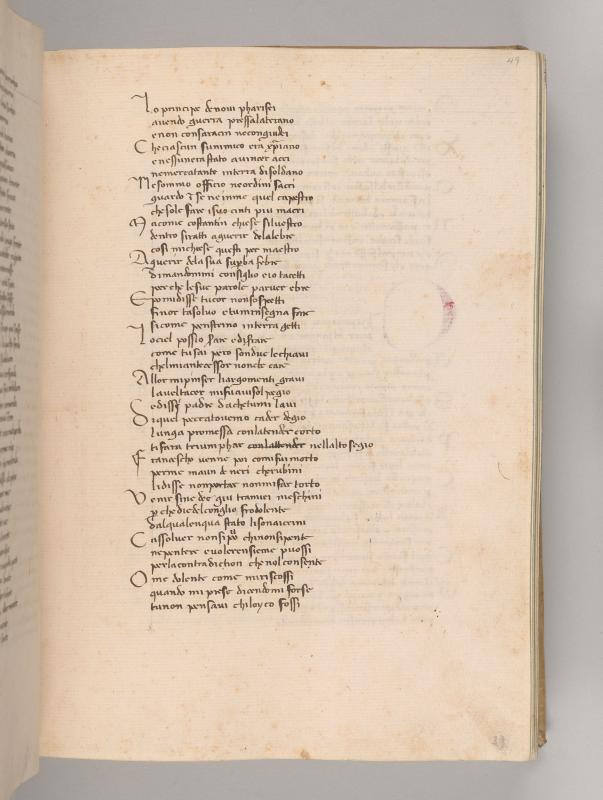 49
Lo principe denoui pharisei
auendo guerra pressalaterano
enon consaracin necongiudei
Checiascun suninmico era xp̄iano
enessunera stato auincer acri
nemercatante interra disoldano
Nesommo officio neordini sacri
guardo ī se neinme quel capestro
chesole fare isuo cinti piu macri
Macome costantin chiese siluestro
dentro siratti aguerir delalebre
cosi michiese questi per maestro
Aguerir dela sua suꝑba febre
dimandommi consiglio eio tacetti
perche lesue parole paruer ebre
Epoimidisse tucor nonsospetti
finor tasoluo etuminsegna fare
sicome penstrino interra getti
Lociel possio serrare edisserrare
come tusai pero sonduo lechiaui
chelmiantecessor nonebe care
Allor mipinser liargomenti graui
laueltacer mifuauisol pegio
edissi padre dachetumi laui
Diquel peccatouemo cader degio
lunga promessa conlatender corto
tifara triumphar conlattender nellalto segio
Francescho uenne poi comifuimorto
perme maun de neri cherubini
lidisse nonportar nonmifar torto
Venir sine dee giu tramiei meschini
ꝑ che diedelconsiglio frodolente
dalqualenqua stato lisonaicrini
Cassoluer nonsi po chinonsipente
nepentere euolerensieme puossi
perla contradiction chenol consente
Ome dolente come miriscossi
quando mi prese dicendomi forse
tunon pensaui chiloyco fossi